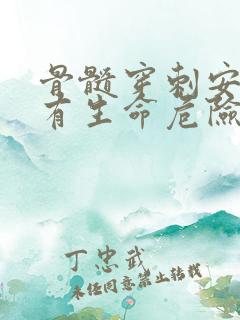 骨髓穿刺安
有生命危险
丁忠武
未经同意禁止转载